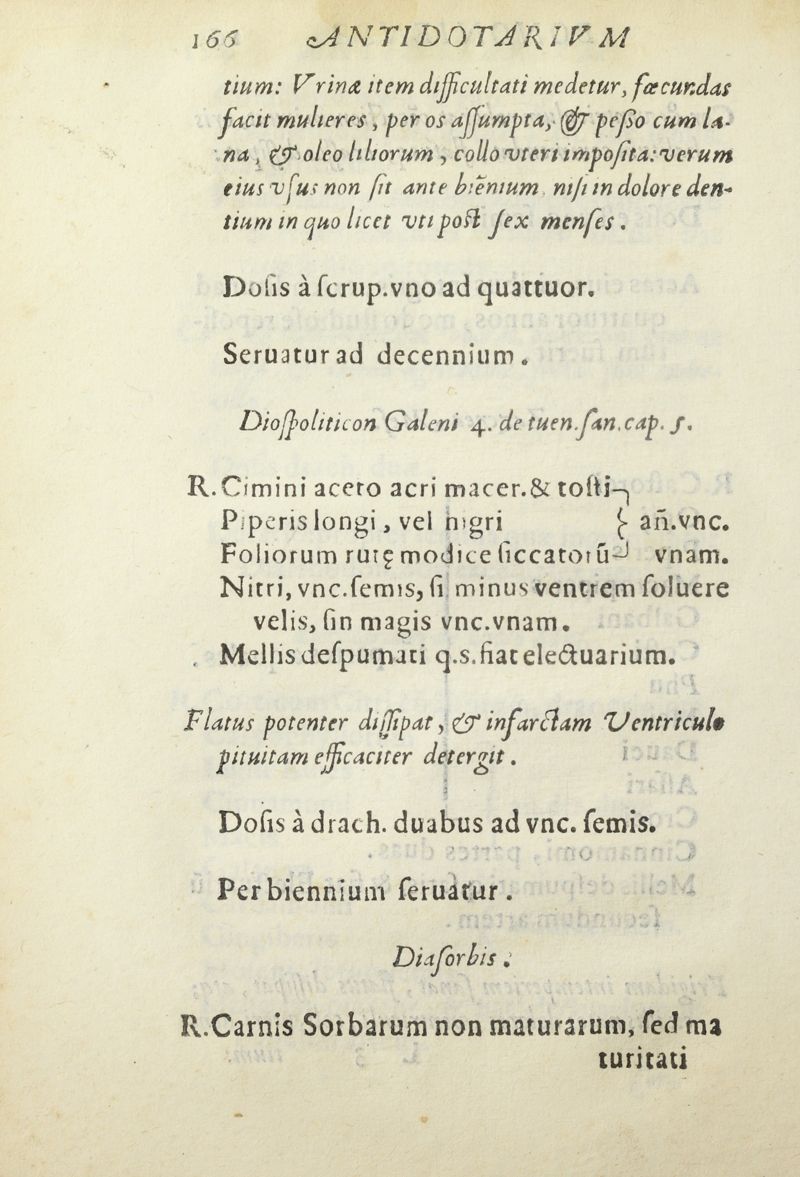 166 ANTIDOTARIVM
tium: Vrinæ item difficultati medetur, fœcundas
facit mulieres, per os aſſumpta, & peſſo cum la-
na, & oleo liliorum, collo vteri impoſita: verum
eius vſus non ſit ante biēnium niſi in dolore den-
tium in quo licet vti poſt ſex menſes.
Doſis à ſcrup.vno ad quattuor.
Seruatur ad decennium.
Dioſpoliticon Galeni 4. de tuen.ſan.cap. 5.
R. Cimini aceto acri macer.& toſti
Piperis longi, vel nigri } añ.vnc.
Foliorum rutę modice ſiccatorū vnam.
Nitri, vnc.ſemis, ſi minus ventrem ſoluere
velis, ſin magis vnc.vnam.
Mellis deſpumati q.s.fiat electuarium.
Flatus potenter diſſipat, & infarctam Ventriculo
pituitam efficaciter detergit.
Doſis à drach. duabus ad vnc. ſemis.
Per biennium ſeruatur.
Diaſorbis.
R.Carnis Sorbarum non maturarum, ſed ma
turitati